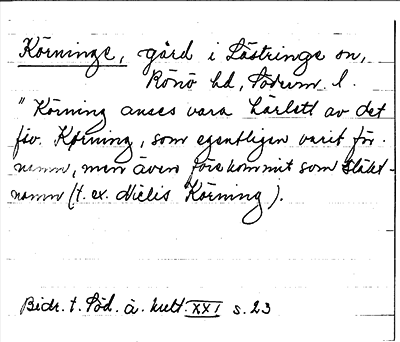 Körninge, gård i Lästringe sn,
Rönö hd, Söderm. l.
"Körning anses vara härlett av det
fsv. Körning, som egentligen varit för-
namn, men även förekommit som släkt-
namn (t. ex. Niclis Körning).
Bidr. t. Söd. ä. kult. XXI s. 23